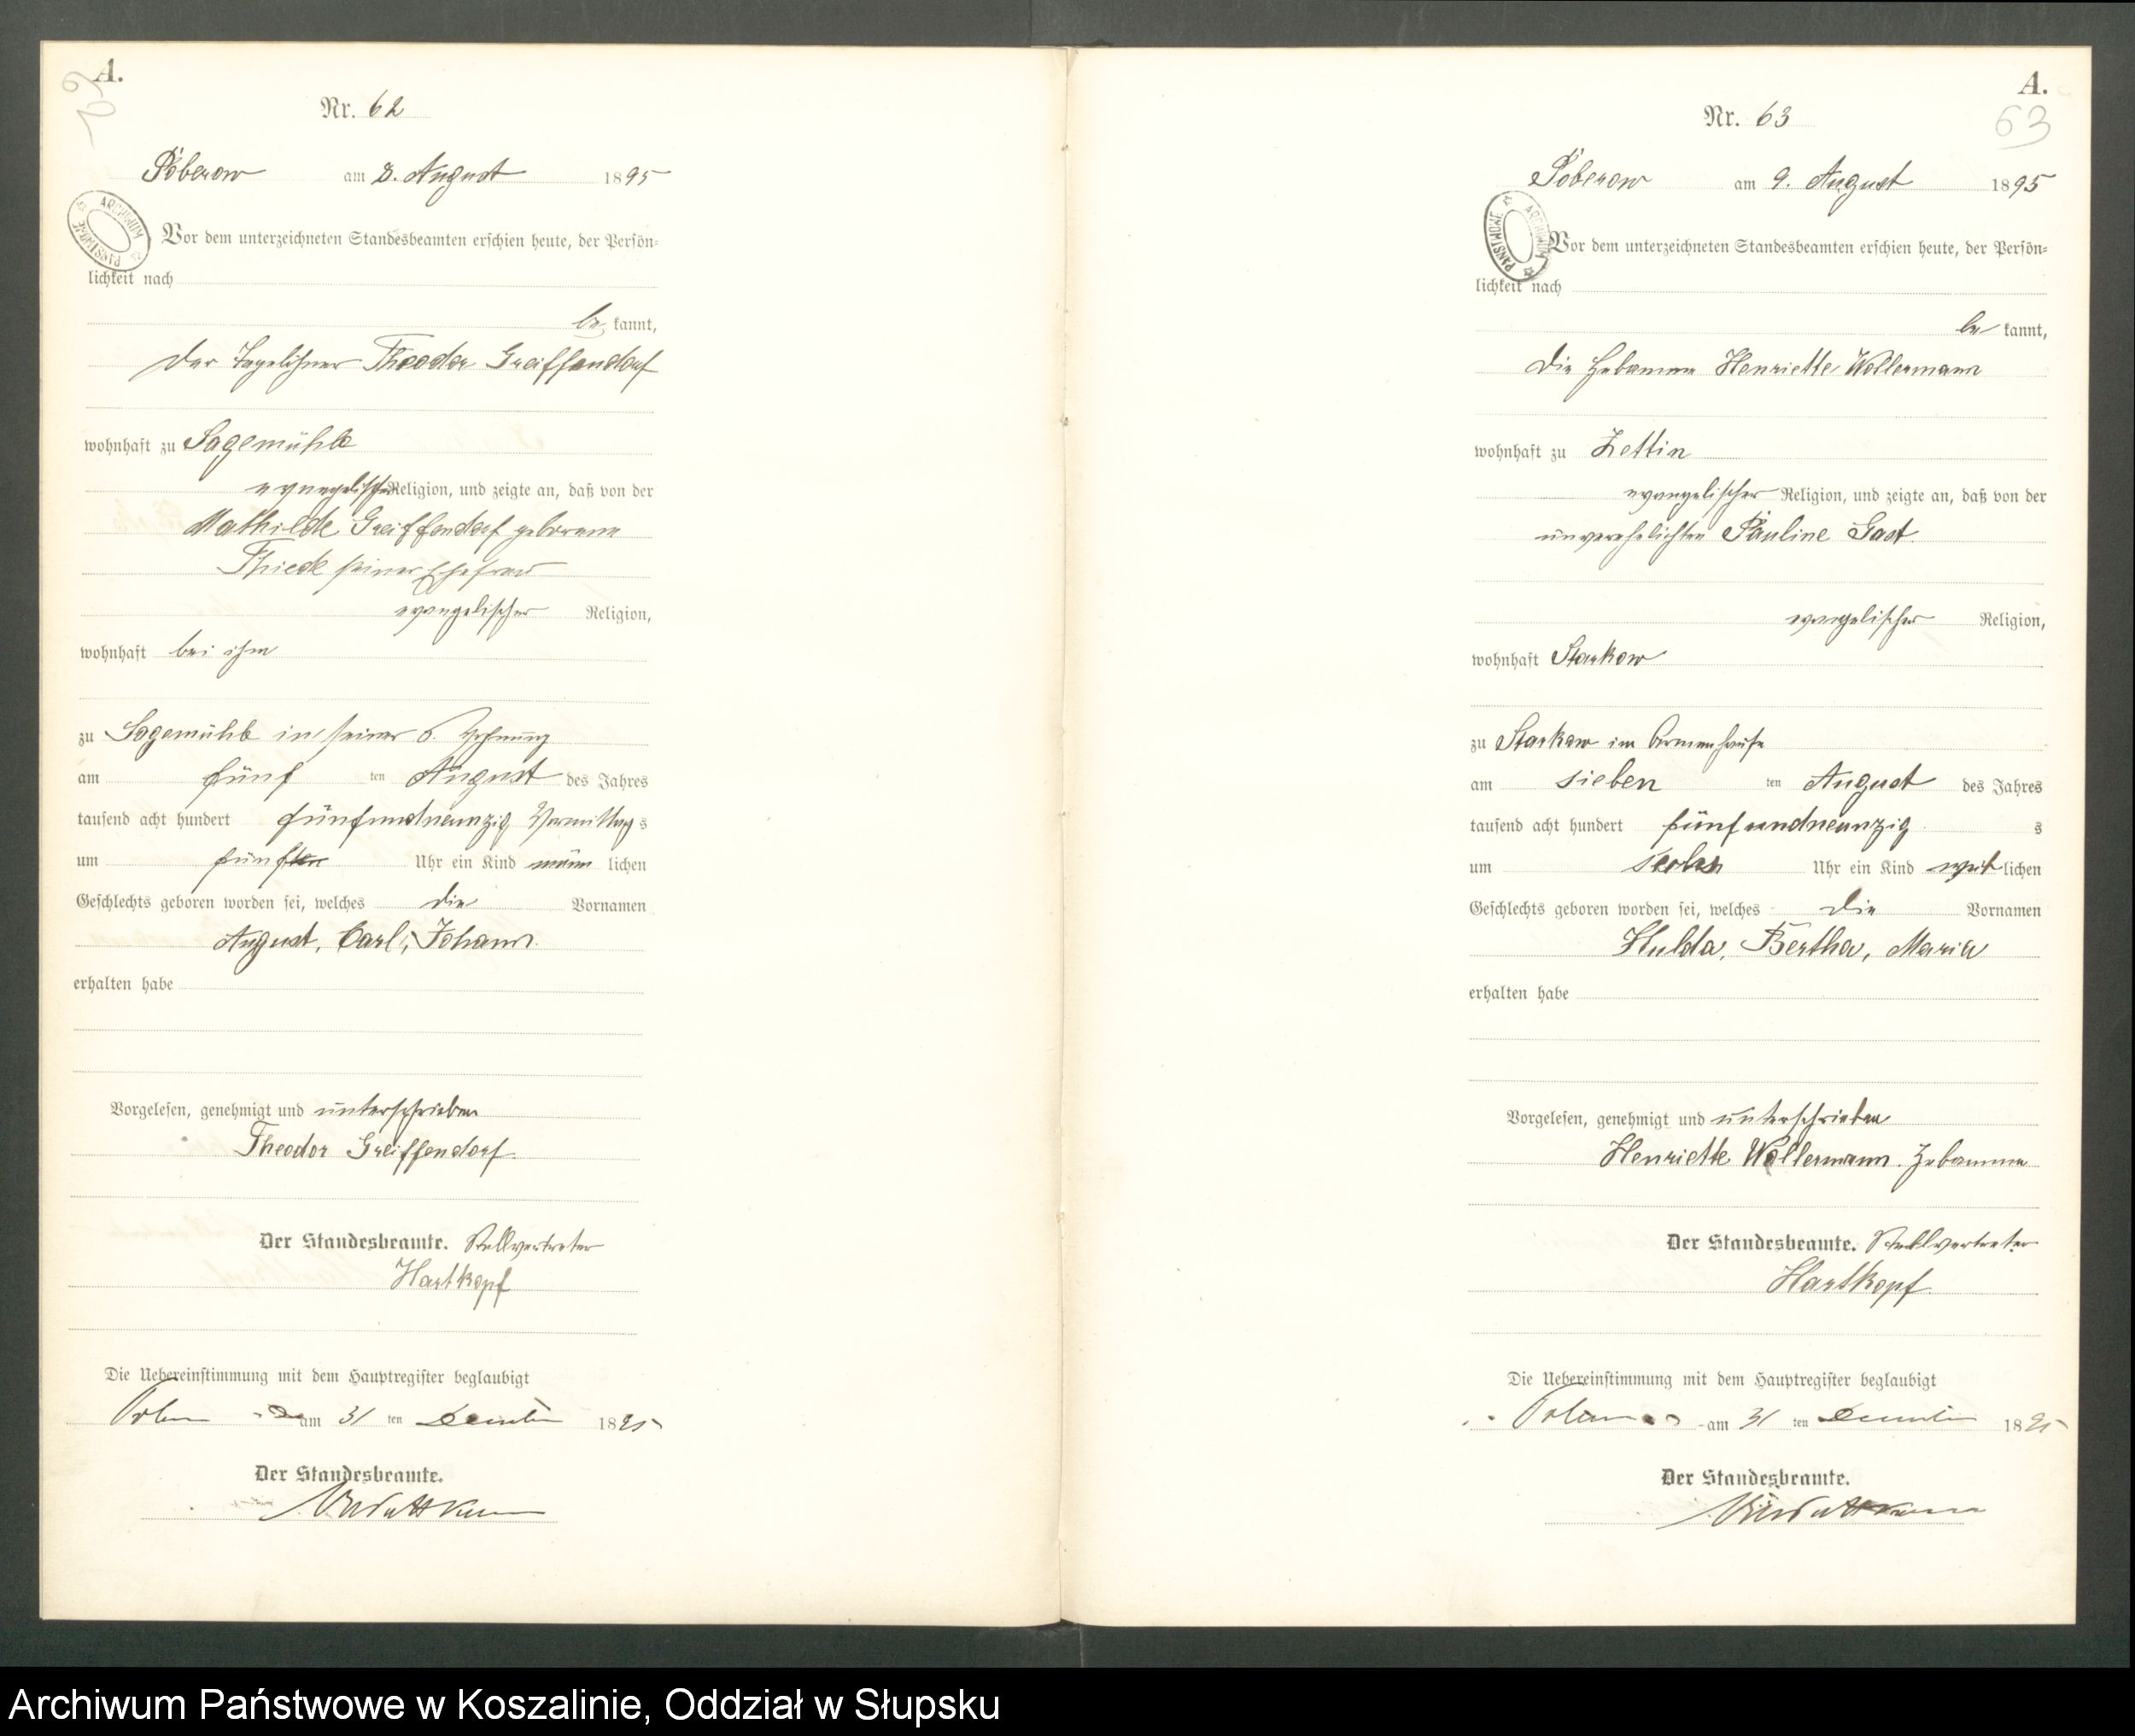 A.
62
Nr. 62
Poberow am 8. August 1895
ARCHIWUM PAŃSTWOWE
Vor dem unterzeichneten Standesbeamten erschien heute, der Persön-
lichkeit nach
be kannt,
der Tagelöhner Theodor Greiffendorf
wohnhaft zu Sagemühle
evangelischer Religion, und zeigte an, daß von der
Mathilde Greiffendorf geborene
Thiede seiner Ehefrau
evangelischer Religion,
wohnhaft bei ihm
zu Sagemühle in seiner Wohnung
am fünf ten August des Jahres
tausend acht hundert fünfundneunzig Vormittag s
um fünf Uhr ein Kind männ lichen
Geschlechts geboren worden sei, welches die Vornamen
August, Carl, Johann.
erhalten habe
Vorgelesen, genehmigt und unterschrieben
Theodor Greiffendorf.
Der Standesbeamte. Stellvertreter
Hartkopf
Die Uebereinstimmung mit dem Hauptregister beglaubigt
am 31 ten Dezember 1895
Der Standesbeamte.
A.
63
Nr. 63
Poberow am 9. August 1895
ARCHIWUM PAŃSTWOWE
Vor dem unterzeichneten Standesbeamten erschien heute, der Persön-
lichkeit nach
be kannt,
die Hebamme Henriette Wollermann
wohnhaft zu Zettin
evangelischer Religion, und zeigte an, daß von der
unverehelichten Pauline Gast.
evangelischer Religion,
wohnhaft Starkow
zu Starkow im Armenhause
am sieben ten August des Jahres
tausend acht hundert fünfundneunzig s
um Uhr ein Kind weib lichen
Geschlechts geboren worden sei, welches die Vornamen
Hulda, Bertha, Maria
erhalten habe
Vorgelesen, genehmigt und unterschrieben
Henriette Wollermann. Hebamme
Der Standesbeamte. Stellvertreter
Hartkopf.
Die Uebereinstimmung mit dem Hauptregister beglaubigt
am 31 ten Dezember 1895
Der Standesbeamte.
Archiwum Państwowe w Koszalinie, Oddział w Słupsku